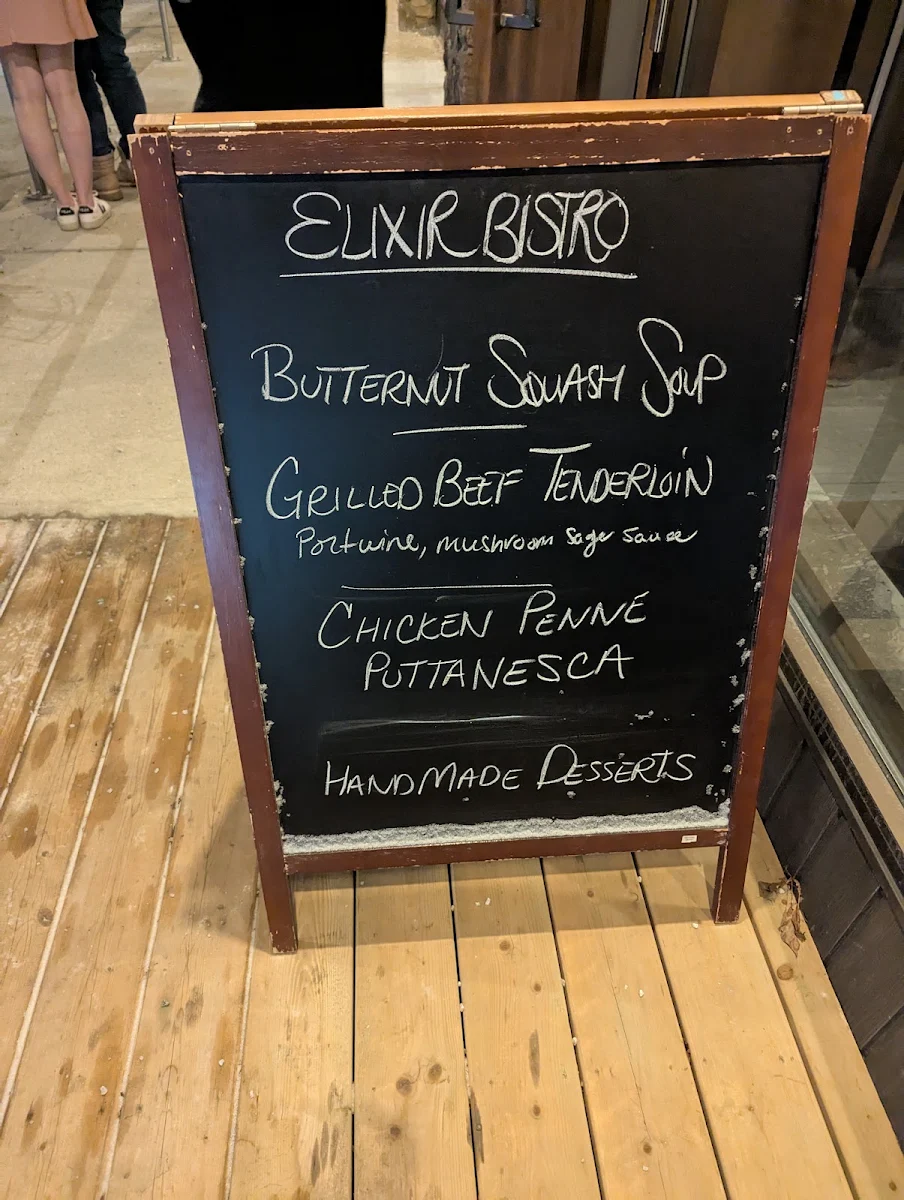 ELIXIR BISTRO
BUTTERNUT SQUASH SOUP
GRILLED BEEF TENDERLOIN
Portwine, mushroom Sage Sauce
CHICKEN PENNÉ
PUTTANESCA
HANDMADE DESSERTS